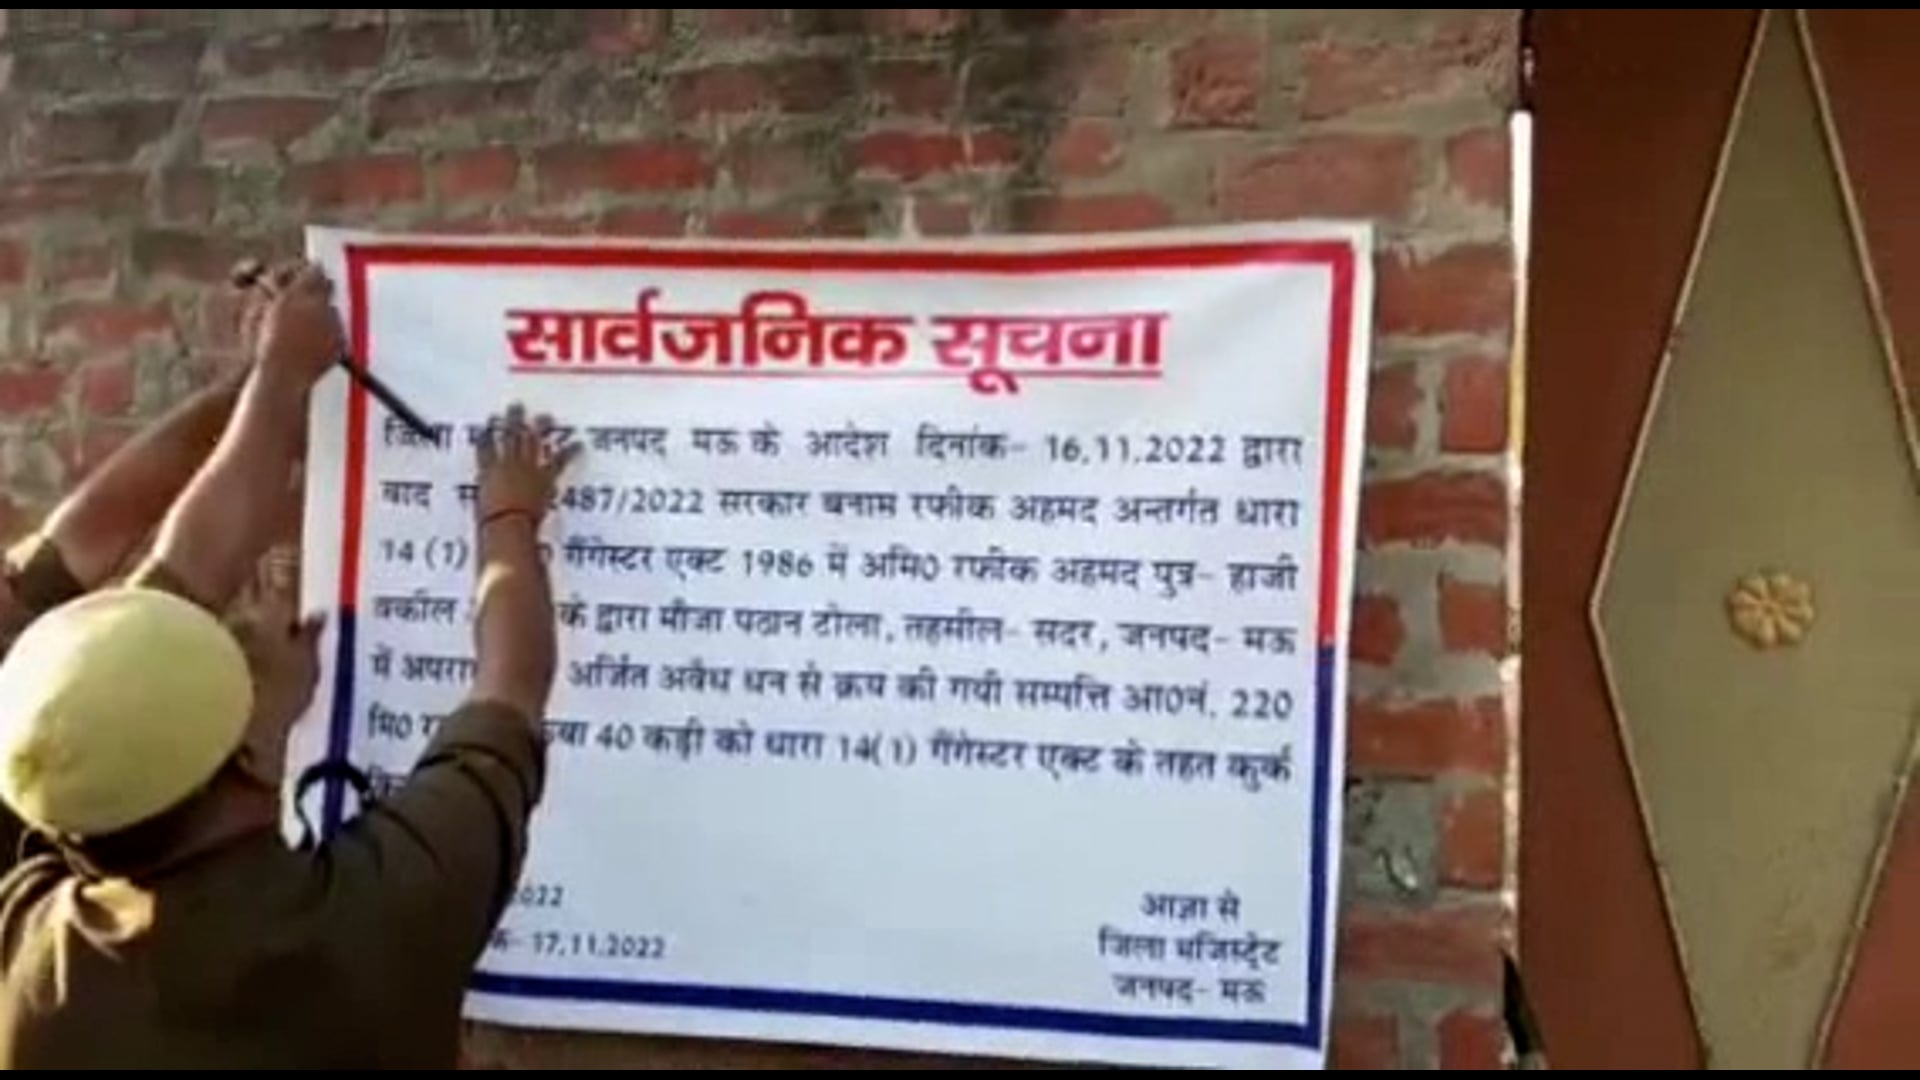 सार्वजनिक सूचना
जिला जनपद मऊ के आदेश दिनांक- 16.11.2022 द्वारा
वाद 2487/2022 सरकार बनाम रफीक अहमद अन्तर्गत धारा
14 (1) गैंगेस्टर एक्ट 1986 में अभि0 रफीक अहमद पुत्र- हाजी
वकील के द्वारा मौजा पठान टोला, तहसील- सदर, जनपद- मऊ
में अर्जित अवैध धन से क्रय की गयी सम्पत्ति आ0नं. 220
मि0 40 कड़ी को धारा 14(1) गैंगेस्टर एक्ट के तहत कुर्क
2022
17.11.2022
आज्ञा से
जिला मजिस्ट्रेट
जनपद- मऊ